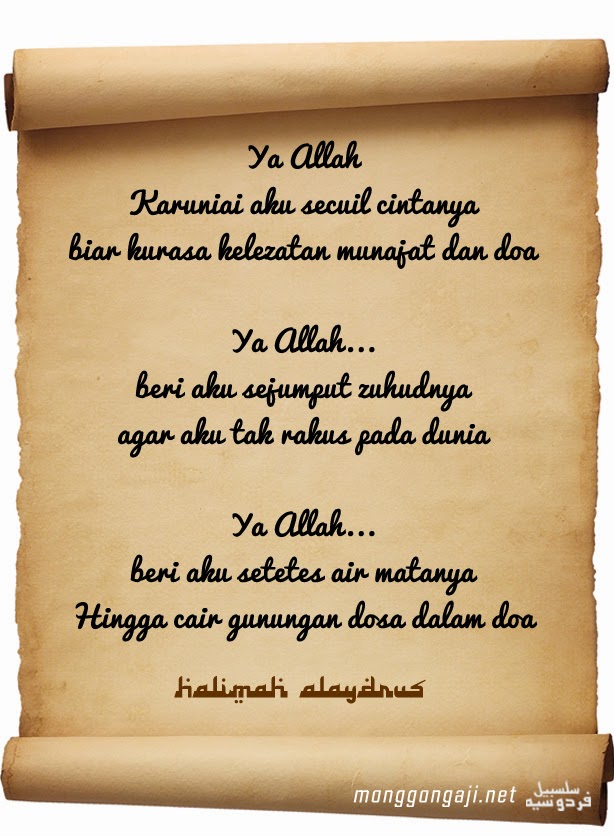 Ya Allah
Karuniai aku secuil cintanya
biar kurasa kelezatan munajat dan doa
Ya Allah...
beri aku sejumput zuhudnya
agar aku tak rakus pada dunia
Ya Allah...
beri aku setetes air matanya
Hingga cair gunungan dosa dalam doa
Halimah Alaydrus
monggongaji.net
سلسبيل
فردوسيه